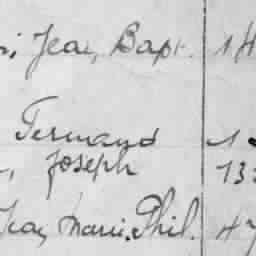 i, Jean, Bapt. 14
Fernand 1
, Joseph 13
Jean, Marie. Phil. 47